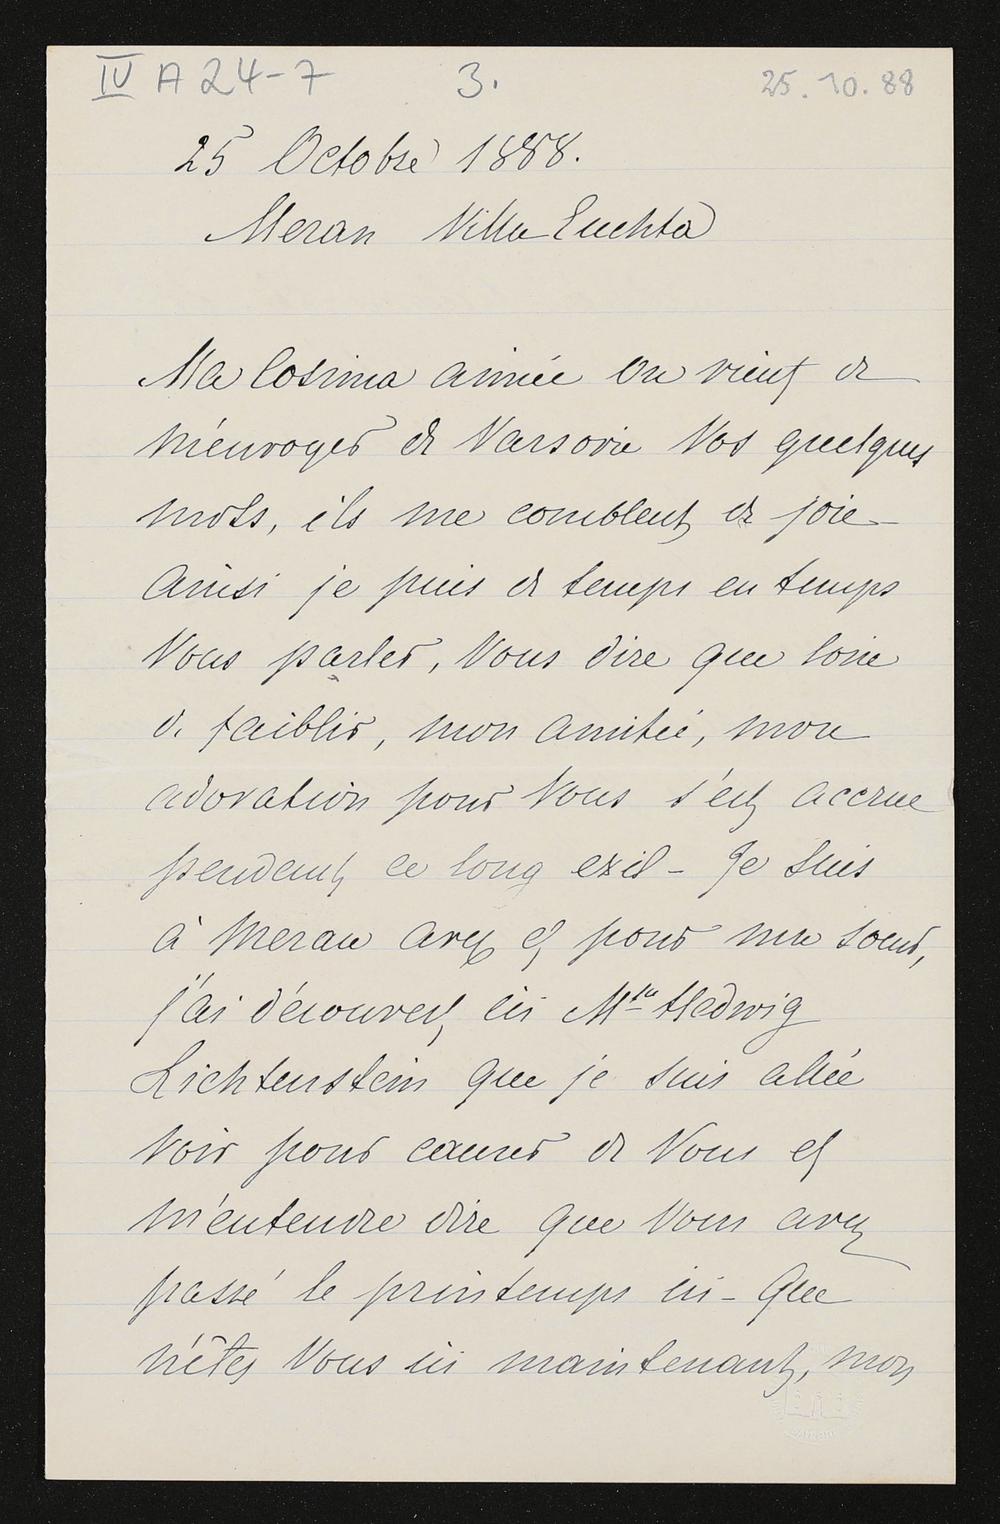 IV A 24-7 3. 25.10.88
25 Octobre 1888.
Meran Villa Euchta
Ma Cosima aimée On vient de
m'envoyer de Varsovie Vos quelques
mots, ils me comblent de joie –
Ainsi je puis de temps en temps
Vous parler, Vous dire que loin
de faiblir, mon amitié, mon
adoration pour Vous s'est accrue
pendant ce long exil – Je suis
à Meran avec et pour ma soeur,
j'ai découvert ici Mlle Hedwig
Lichtenstein que je suis allée
voir pour causer de Vous et
m'entendre dire que Vous avez
passé le printemps ici – Que
n'êtes Vous ici maintenant, mon